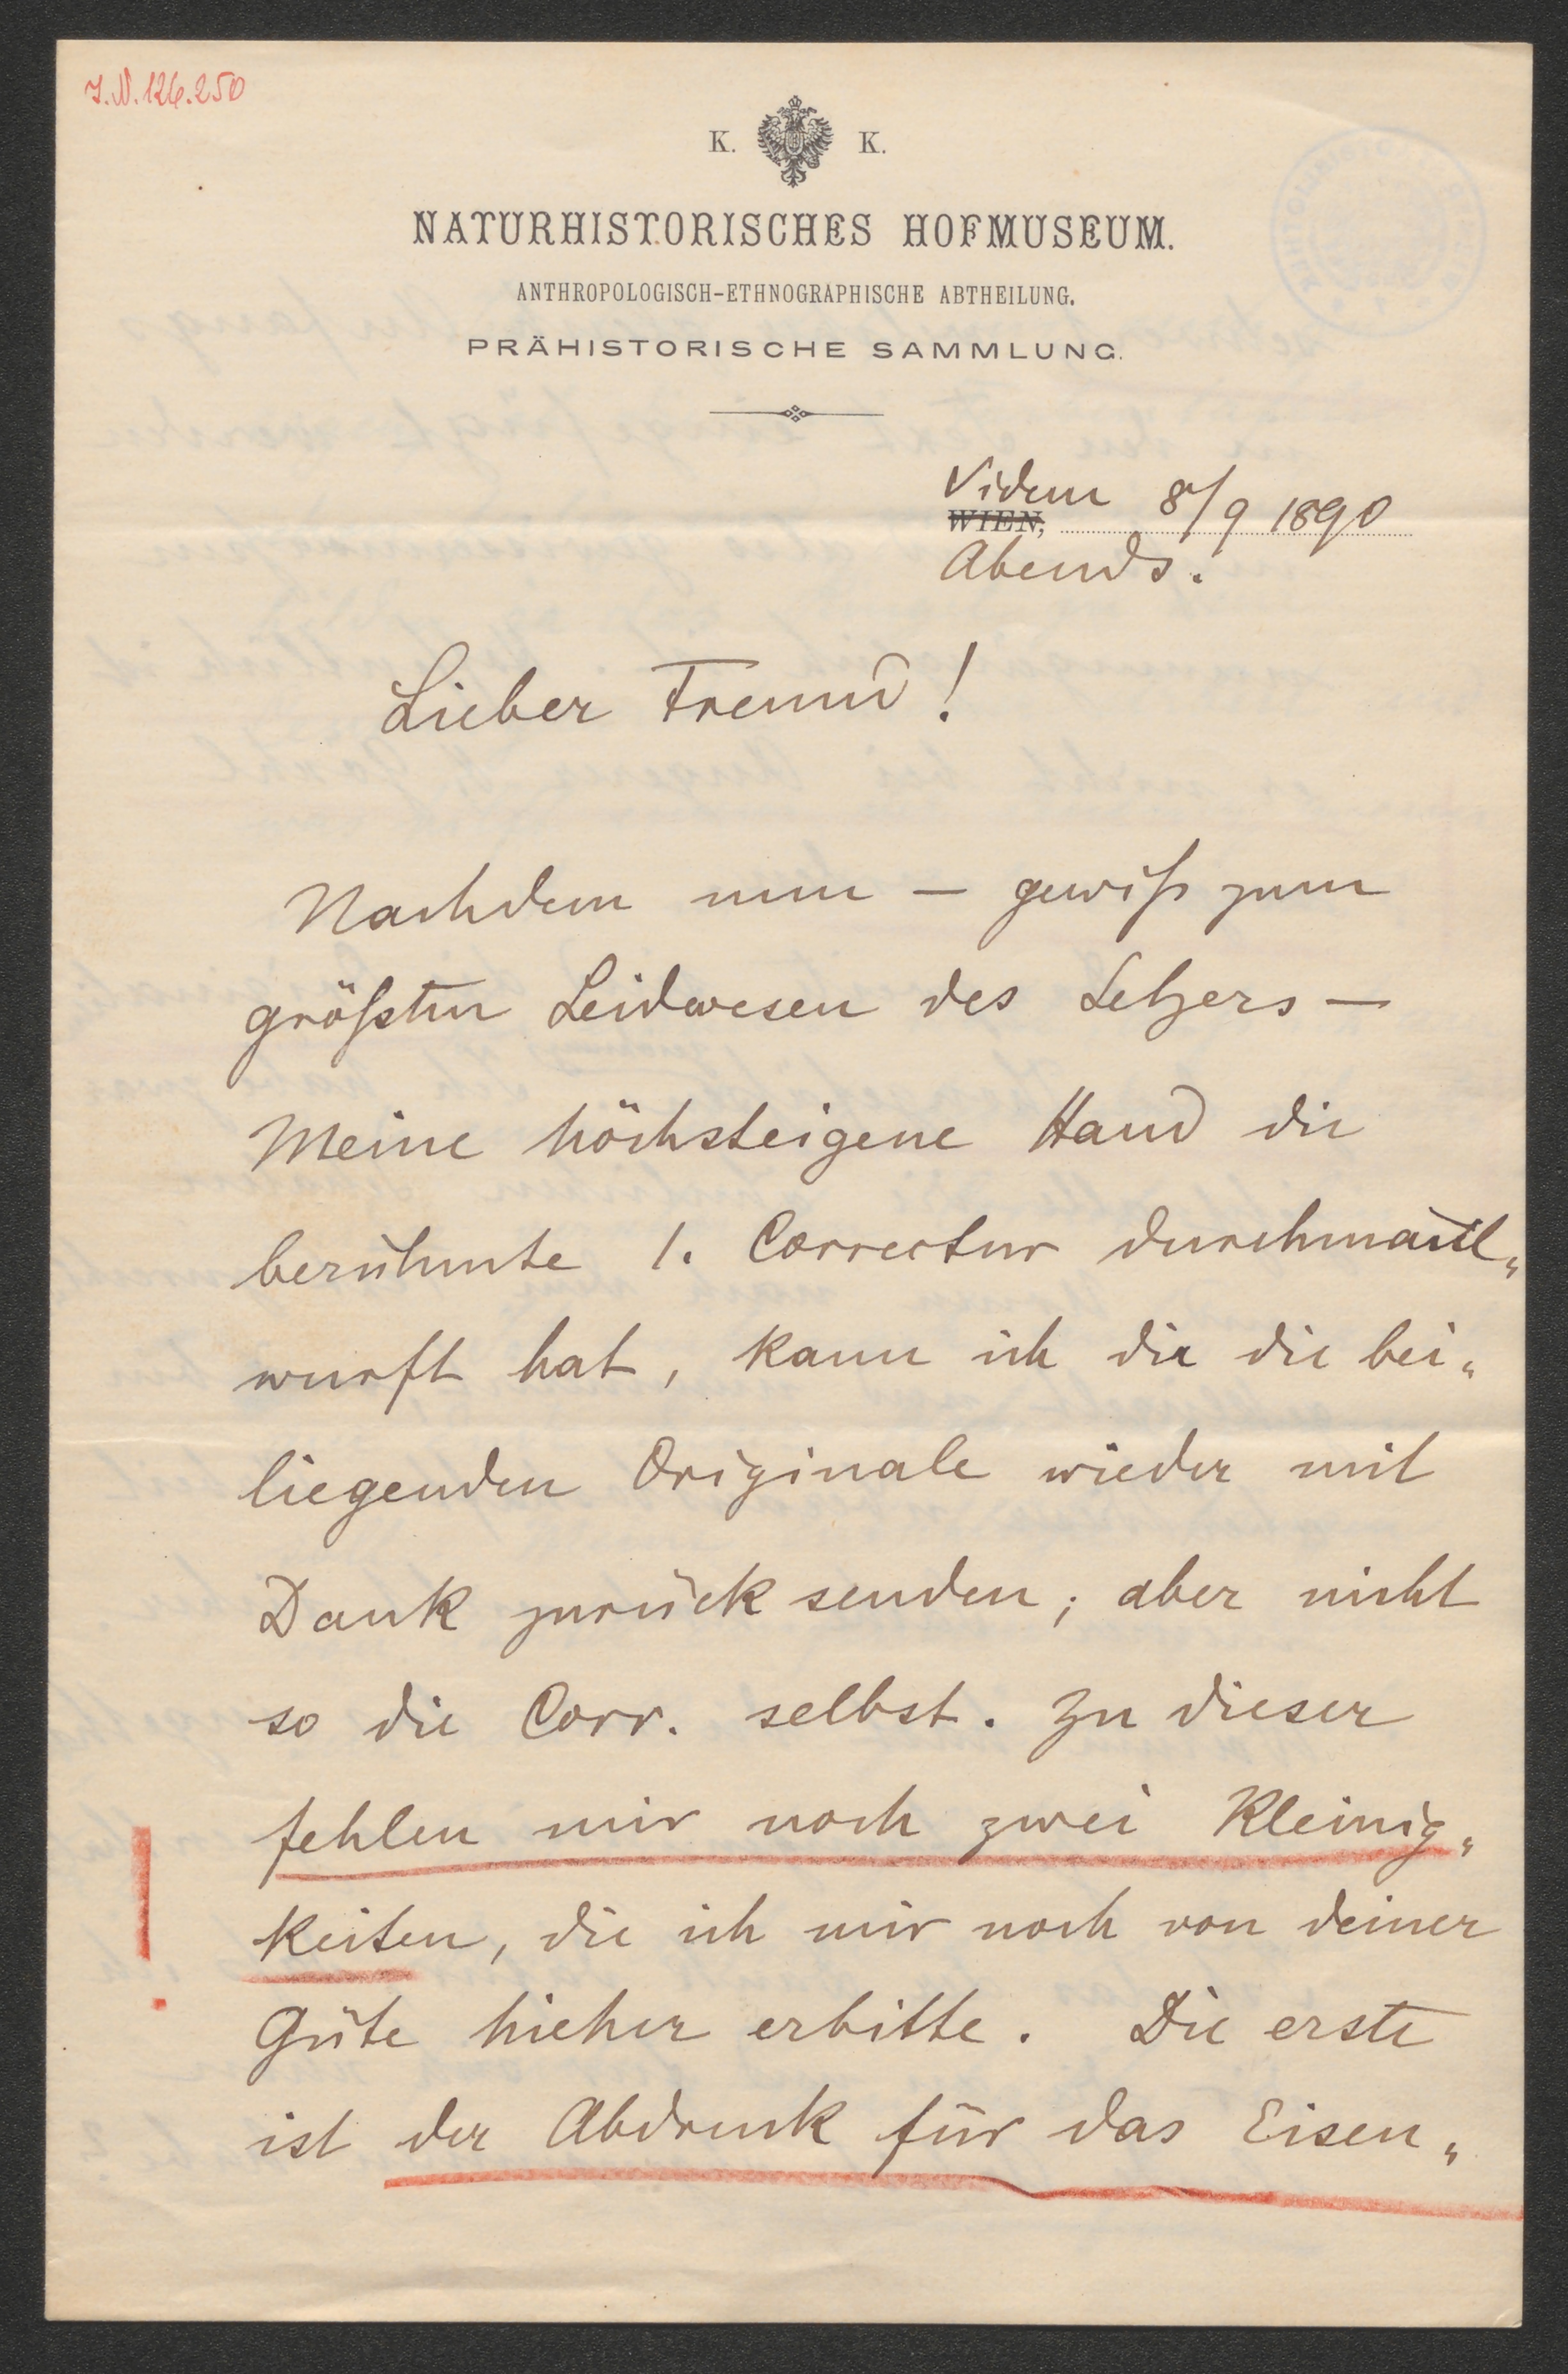 J.N. 126.250
K. K.
NATURHISTORISCHES HOFMUSEUM.
ANTHROPOLOGISCH-ETHNOGRAPHISCHE ABTHEILUNG.
PRÄHISTORISCHE SAMMLUNG.
Videm 8/9 1890
WIEN,
Abends.
Lieber Freund!
Nachdem nun — gewiß zum
größten Leidwesen des Setzers —
Meine höchsteigene Hand die
berühmte 1. Correctur durchmaul„
wurft hat, kann ich dir die bei„
liegenden Originale wieder mit
Dank zurück senden; aber nicht
so die Corr. selbst. Zu dieser
fehlen mir noch zwei Kleinig„
keiten, die ich mir noch von deiner
Güte hieher erbitte. Die erste
ist der Abdruck für das Eisen„